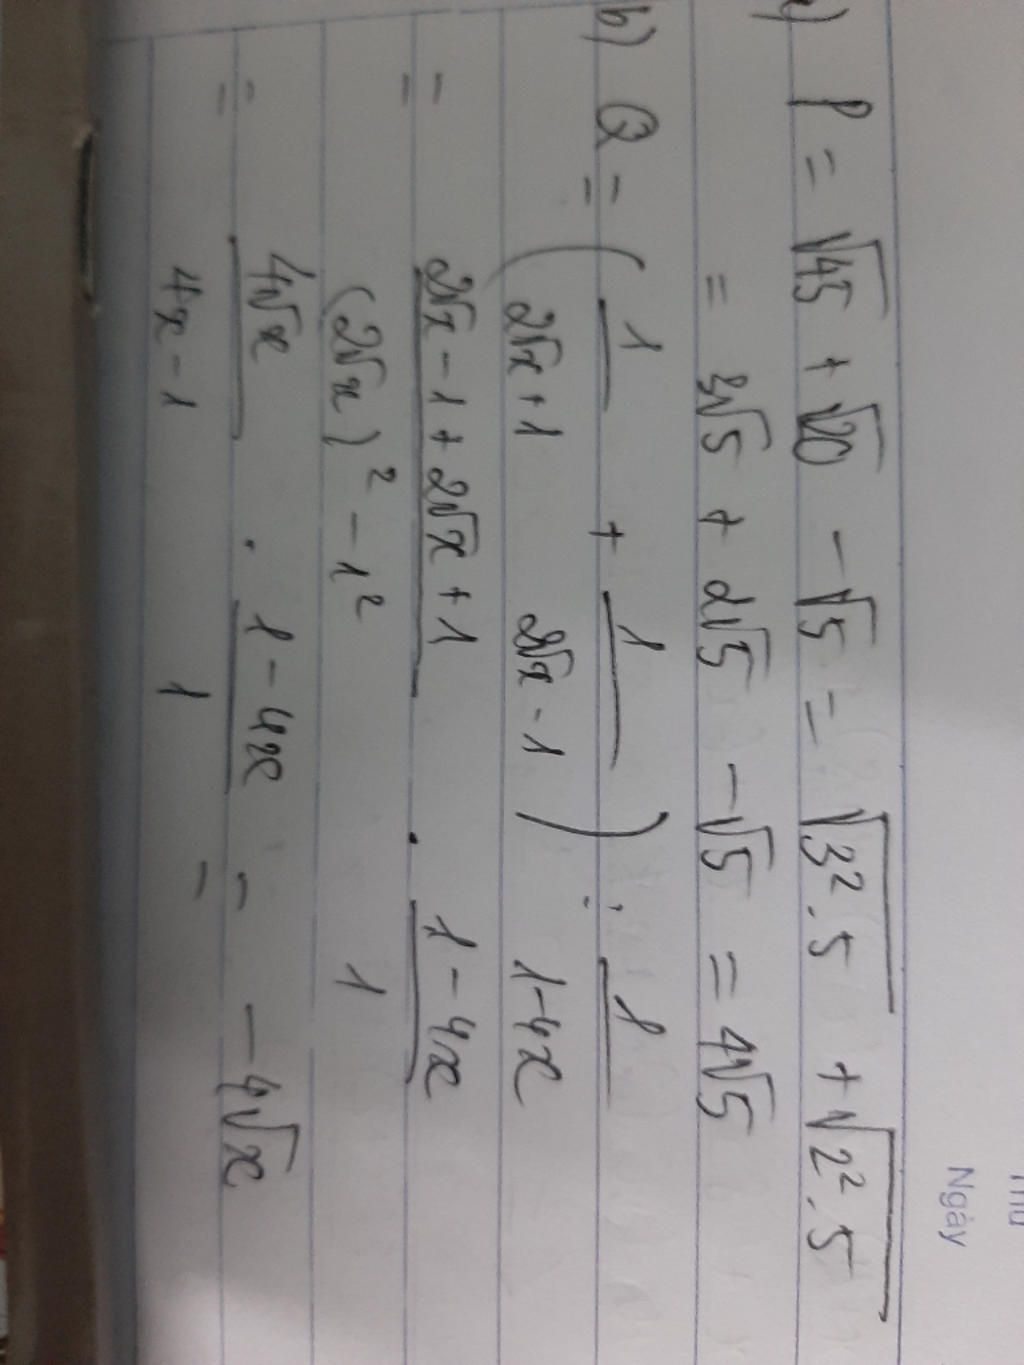 Thứ
Ngày
a) P = √45 + √20 - √5 = √3².5 + √2².5
= 3√5 + 2√5 - √5 = 4√5
b) Q = ( 1/(2√x + 1) + 1/(2√x - 1) ) : 1/(1-4x)
= (2√x - 1 + 2√x + 1)/((2√x)² - 1²) . (1 - 4x)/1
= 4√x/(4x - 1) . (1 - 4x)/1 = - 4√x